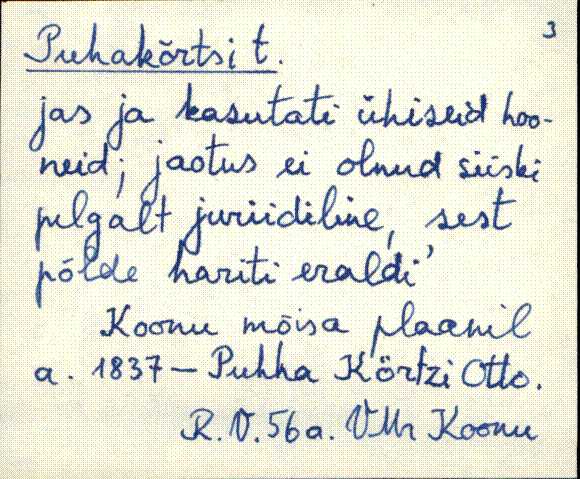 3
Puhakõrtsi t.
jas ja kasutati ühiseid hoo-
neid; jaotus ei olnud siiski
pelgalt juriidiline, sest
põlde hariti eraldi'
Koonu mõisa plaanil
a. 1837 — Puhha Körtzi Otto.
R.V. 56a. VMr Koonu